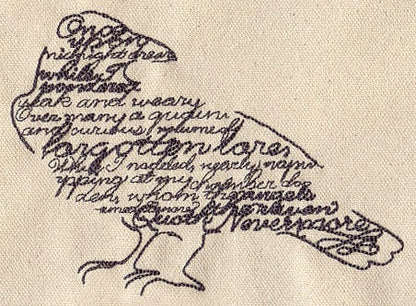 Once
upon
midnight dreary
while I
pondered
weak and weary
Over many a quaint
and curious volume of
forgotten lore,
While I nodded, nearly napp
pping at my chamber do
den, whom the angels
Quoth the raven Nevermore